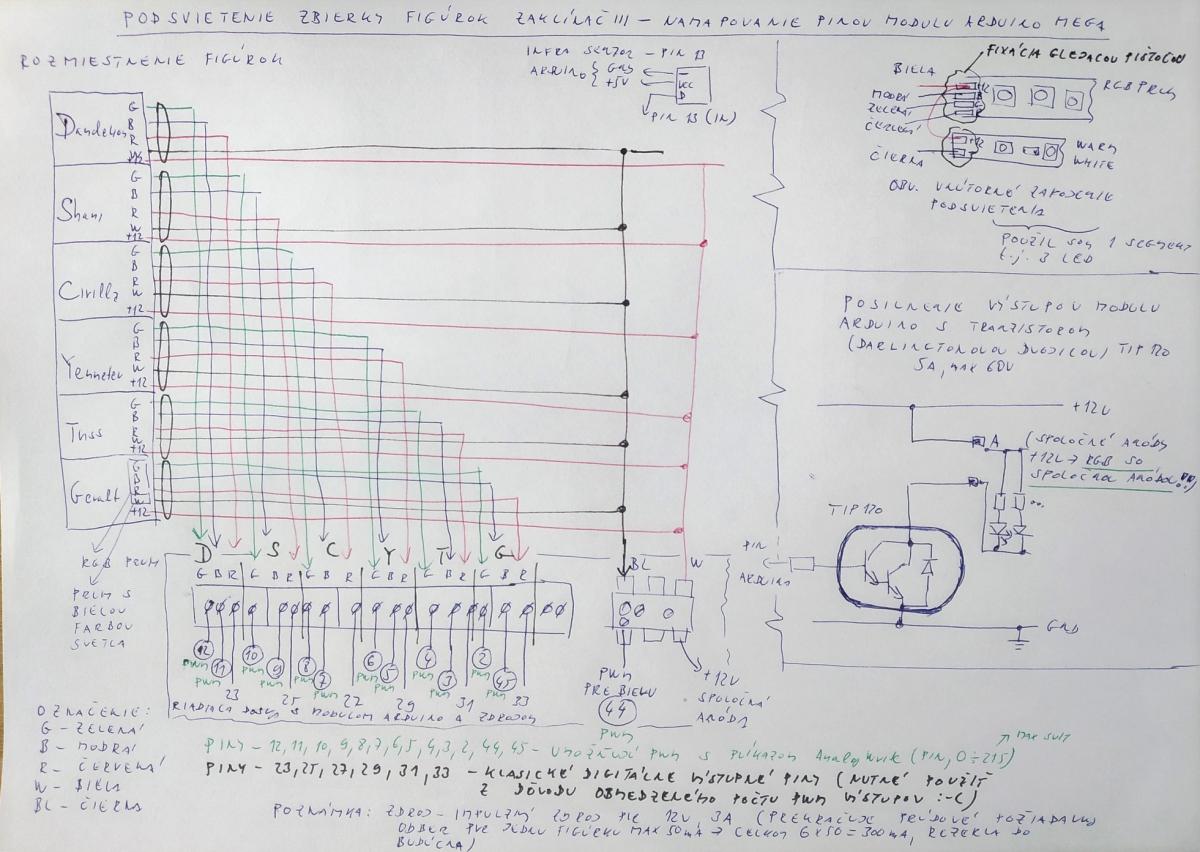 PODSVIETENIE ZBIERKY FIGÚROK ZAKLÍNAČ III - NAMAPOVANIE PINOV MODULU ARDUINO MEGA
ROZMIESTNENIE FIGÚROK
INFRA SENZOR - PIN 13
ARDUINO { GND
+5V
VCC
D
PIN 13 (IN)
FIXÁCIA GLEJACOU PIŠTOĽOU
BIELA
MODRÁ
ZELENÁ
ČERVENÁ
ČIERNA
+12
B
G
R
RGB PRÚH
+12
WARM
WHITE
OBV. VNÚTORNÉ ZAPOJENIE
PODSVIETENIA
POUŽIL SOM 1 SEGMENT
t.j. 3 LED
Dandelion
G
B
R
W
Shani
G
B
R
W
+12
Cirilla
G
B
R
W
+12
Yennefer
G
B
R
W
+12
Triss
G
B
R
W
+12
Geralt
G
B
R
W
+12
RGB PRÚH
PRÚH S
BIELOU
FARBOU
SVETLA
D S C Y T G
G B R G B R G B R G B R G B R G B R
BL W
12 11 10 9 8 7 6 5 4 3 2 45
PWM PWM PWM PWM PWM PWM PWM PWM PWM PWM PWM PWM
23 25 27 29 31 33
RIADIACA DOSKA S MODULOM ARDUINO A ZDROJOM
PWM
PRE BIELU
44
PWM
+12V
SPOLOČNÁ
ANÓDA
POSILNENIE VÝSTUPOV MODULU
ARDUINO S TRANZISTOROM
(DARLINGTONOVOU DVOJICOU) TIP 120
5A, MAX 60V
+12V
A
(SPOLOČNÉ ANÓDY
+12V → RGB SO
SPOLOČNOU ANÓDOU!!!)
TIP 120
PIN
ARDUINO
GND
OZNAČENIE:
G - ZELENÁ
B - MODRÁ
R - ČERVENÁ
W - BIELA
BL - ČIERNA
MAX SVIT
PINY - 12, 11, 10, 9, 8, 7, 6, 5, 4, 3, 2, 44, 45 - UMOŽŇUJÚ PWM S PRÍKAZOM AnalogWrite (PIN, 0÷215)
PINY - 23, 25, 27, 29, 31, 33 - KLASICKÉ DIGITÁLNE VÝSTUPNÉ PINY (NUTNÉ POUŽIŤ
Z DÔVODU OBMEDZENÉHO POČTU PWM VÝSTUPOV :-()
POZNÁMKA: ZDROJ - IMPULZNÝ ZDROJ PRE 12V, 3A (PREKRAČUJE PRÚDOVÉ POŽIADAVKY
ODBER PRE JEDNU FIGÚRKU MAX 50mA → CELKOM 6x50 = 300mA, REZERVA DO
BUDÚCNA)